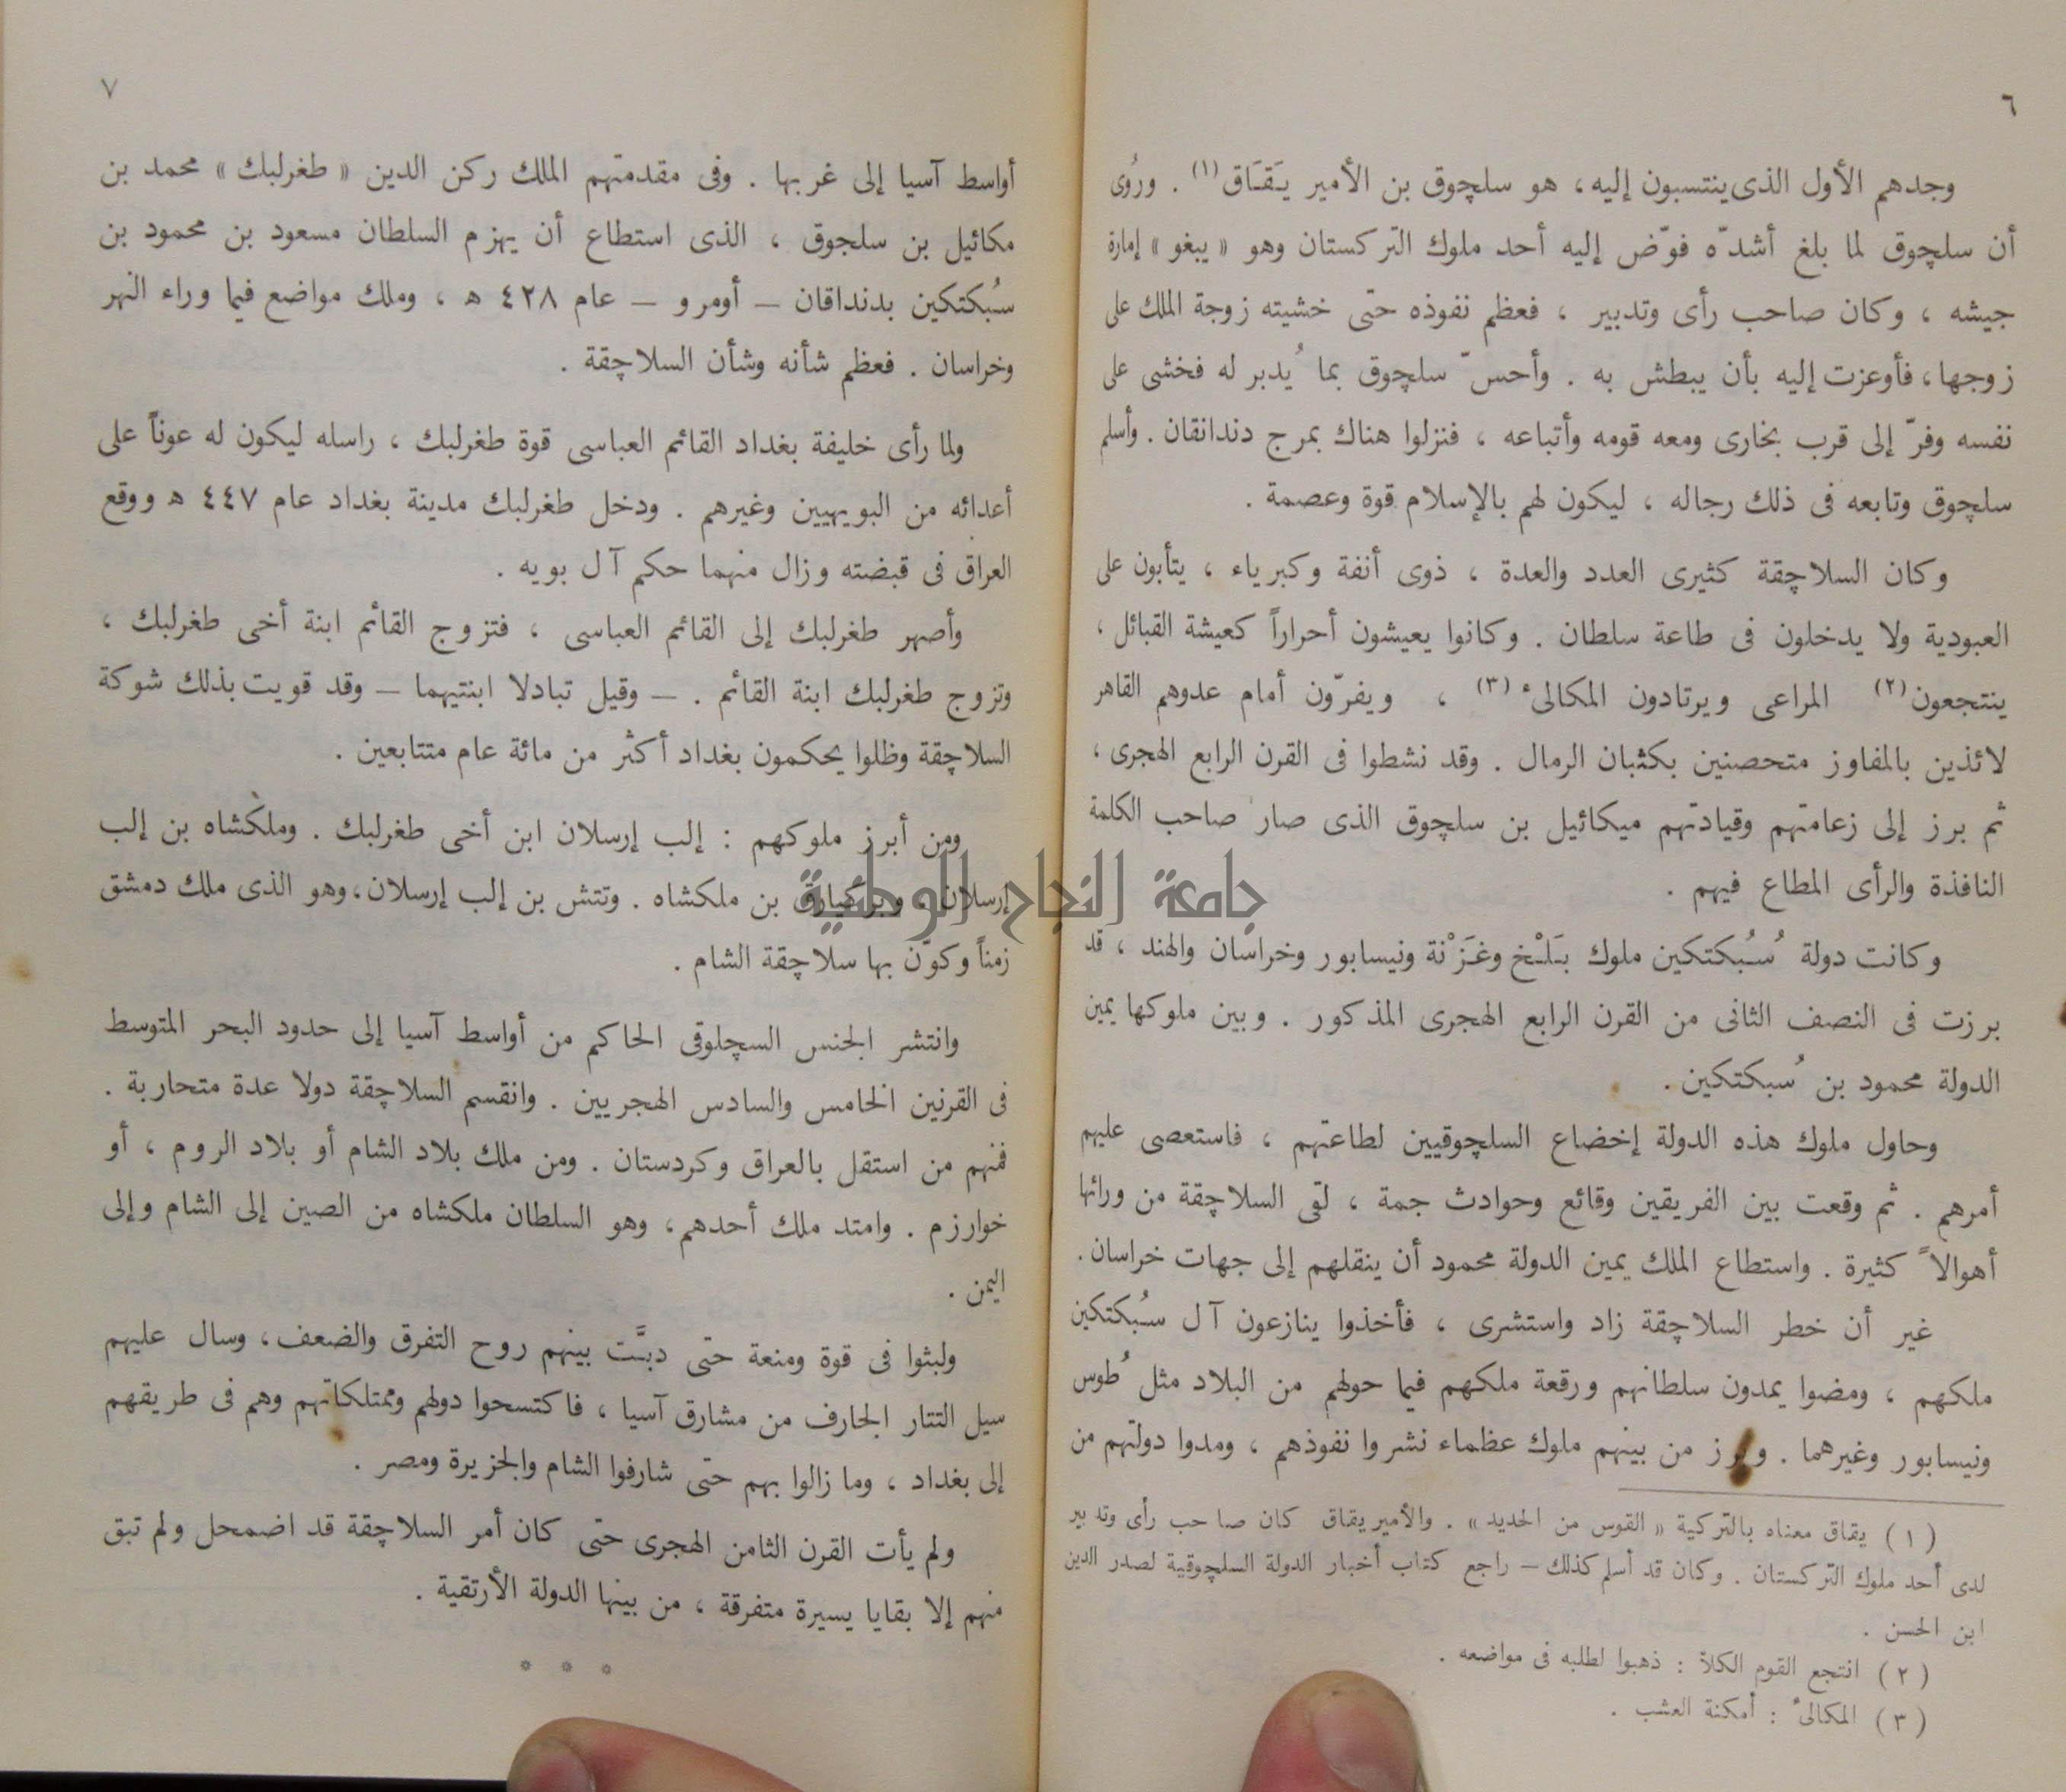 ٦
وجدهم الأول الذى ينتسبون إليه، هو سلچوق بن الأمير يَقَاق (١) . ورُوى
أن سلچوق لما بلغ أشدّه فوّض إليه أحد ملوك التركستان وهو « يبغو » إمارة
جيشه ، وكان صاحب رأى وتدبير ، فعظم نفوذه حتى خشيته زوجة الملك على
زوجها، فأوعزت إليه بأن يبطش به . وأحسّ سلچوق بما يُدبر له فخشى على
نفسه وفرّ إلى قرب بخارى ومعه قومه وأتباعه ، فنزلوا هناك بمرج دندانقان . وأسلم
سلچوق وتابعه فى ذلك رجاله ، ليكون لهم بالإسلام قوة وعصمة .
وكان السلاچقة كثيرى العدد والعدة ، ذوى أنفة وكبرياء ، يتأبون على
العبودية ولا يدخلون فى طاعة سلطان . وكانوا يعيشون أحراراً كعيشة القبائل ،
ينتجعون (٢) المراعى ويرتادون المكالىء (٣) ، ويفرّون أمام عدوهم القاهر
لائذين بالمفاوز متحصنين بكثبان الرمال . وقد نشطوا فى القرن الرابع الهجرى ،
ثم برز إلى زعامتهم وقيادتهم ميكائيل بن سلچوق الذى صار صاحب الكلمة
النافذة والرأى المطاع فيهم .
وكانت دولة سُبُكتكين ملوك بَلْخ وغَزْنة ونيسابور وخراسان والهند ، قد
برزت فى النصف الثانى من القرن الرابع الهجرى المذكور . وبين ملوكها يمين
الدولة محمود بن سُبكتكين .
وحاول ملوك هذه الدولة إخضاع السلچوقيين لطاعتهم ، فاستعصى عليهم
أمرهم . ثم وقعت بين الفريقين وقائع وحوادث جمة ، لقى السلاچقة من ورائها
أهوالاً كثيرة . واستطاع الملك يمين الدولة محمود أن ينقلهم إلى جهات خراسان .
غير أن خطر السلاچقة زاد واستشرى ، فأخذوا ينازعون آل سبُكتكين
ملكهم ، ومضوا يمدون سلطانهم ورقعة ملكهم فيما حولهم من البلاد مثل طُوس
ونيسابور وغيرهما . وبرز من بينهم ملوك عظماء نشروا نفوذهم ، ومدوا دولتهم من
(١) يقاق معناه بالتركية « القوس من الحديد » . والأمير يقاق كان صاحب رأى وتدبير
لدى أحد ملوك التركستان . وكان قد أسلم كذلك – راجع كتاب أخبار الدولة السلچوقية لصدر الدين
ابن الحسن .
(٢) انتجع القوم الكلأ : ذهبوا لطلبه فى مواضعه .
(٣) المكالىء : أمكنة العشب .
٧
أواسط آسيا إلى غربها . وفى مقدمتهم الملك ركن الدين « طغرلبك » محمد بن
مكائيل بن سلجوق ، الذى استطاع أن يهزم السلطان مسعود بن محمود بن
سبُكتكين بدنداقان – أومرو – عام ٤٢٨ ه ، وملك مواضع فيما وراء النهر
وخراسان . فعظم شأنه وشأن السلاچقة .
ولما رأى خليفة بغداد القائم العباسى قوة طغرلبك ، راسله ليكون له عوناً على
أعدائه من البويهيين وغيرهم . ودخل طغرلبك مدينة بغداد عام ٤٤٧ ه ووقع
العراق فى قبضته وزال منهما حكم آل بويه .
وأصهر طغرلبك إلى القائم العباسى ، فتزوج القائم ابنة أخى طغرلبك ،
وتزوج طغرلبك ابنة القائم . – وقيل تبادلا ابنتيهما – وقد قويت بذلك شوكة
السلاچقة وظلوا يحكمون بغداد أكثر من مائة عام متتابعين .
ومن أبرز ملوكهم : إلب إرسلان ابن أخى طغرلبك . وملكشاه بن إلب
إرسلان . وبركيارق بن ملكشاه . وتتش بن إلب إرسلان، وهو الذى ملك دمشق
زمناً وكوّن بها سلاچقة الشام .
جامعة النجاح الوطنية
وانتشر الجنس السچلوقى الحاكم من أواسط آسيا إلى حدود البحر المتوسط
فى القرنين الخامس والسادس الهجريين . وانقسم السلاچقة دولا عدة متحاربة .
فمنهم من استقل بالعراق وكردستان . ومن ملك بلاد الشام أو بلاد الروم ، أو
خوارزم . وامتد ملك أحدهم، وهو السلطان ملكشاه من الصين إلى الشام وإلى
اليمن .
ولبثوا فى قوة ومنعة حتى دبَّت بينهم روح التفرق والضعف، وسال عليهم
سيل التتار الجارف من مشارق آسيا ، فاكتسحوا دولهم وممتلكاتهم وهم فى طريقهم
إلى بغداد ، وما زالوا بهم حتى شارفوا الشام والجزيرة ومصر .
ولم يأت القرن الثامن الهجرى حتى كان أمر السلاچقة قد اضمحل ولم تبق
منهم إلا بقايا يسيرة متفرقة ، من بينها الدولة الأرتقية .
* * *